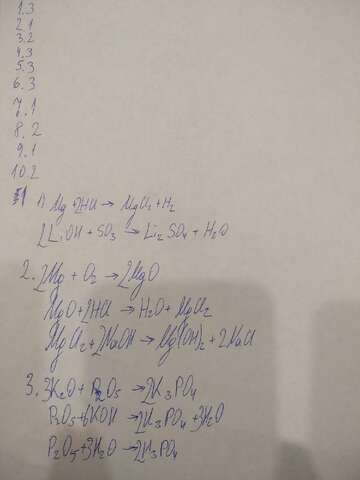 1.3
2.1
3.2
4.3
5.3
6.3
7.1
8.2
9.1
10.2
1) Mg+2HCl→MgCl₂+H₂
2LiOH+SO₃→Li₂SO₄+H₂O
2. 2Mg+O₂→2MgO
MgO+2HCl→H₂O+MgCl₂
MgCl₂+2NaOH→Mg(OH)₂+2NaCl
3. 3K₂O+P₂O₅→2K₃PO₄
P₂O₅+6KOH→2K₃PO₄+3H₂O
P₂O₅+3H₂O→2H₃PO₄